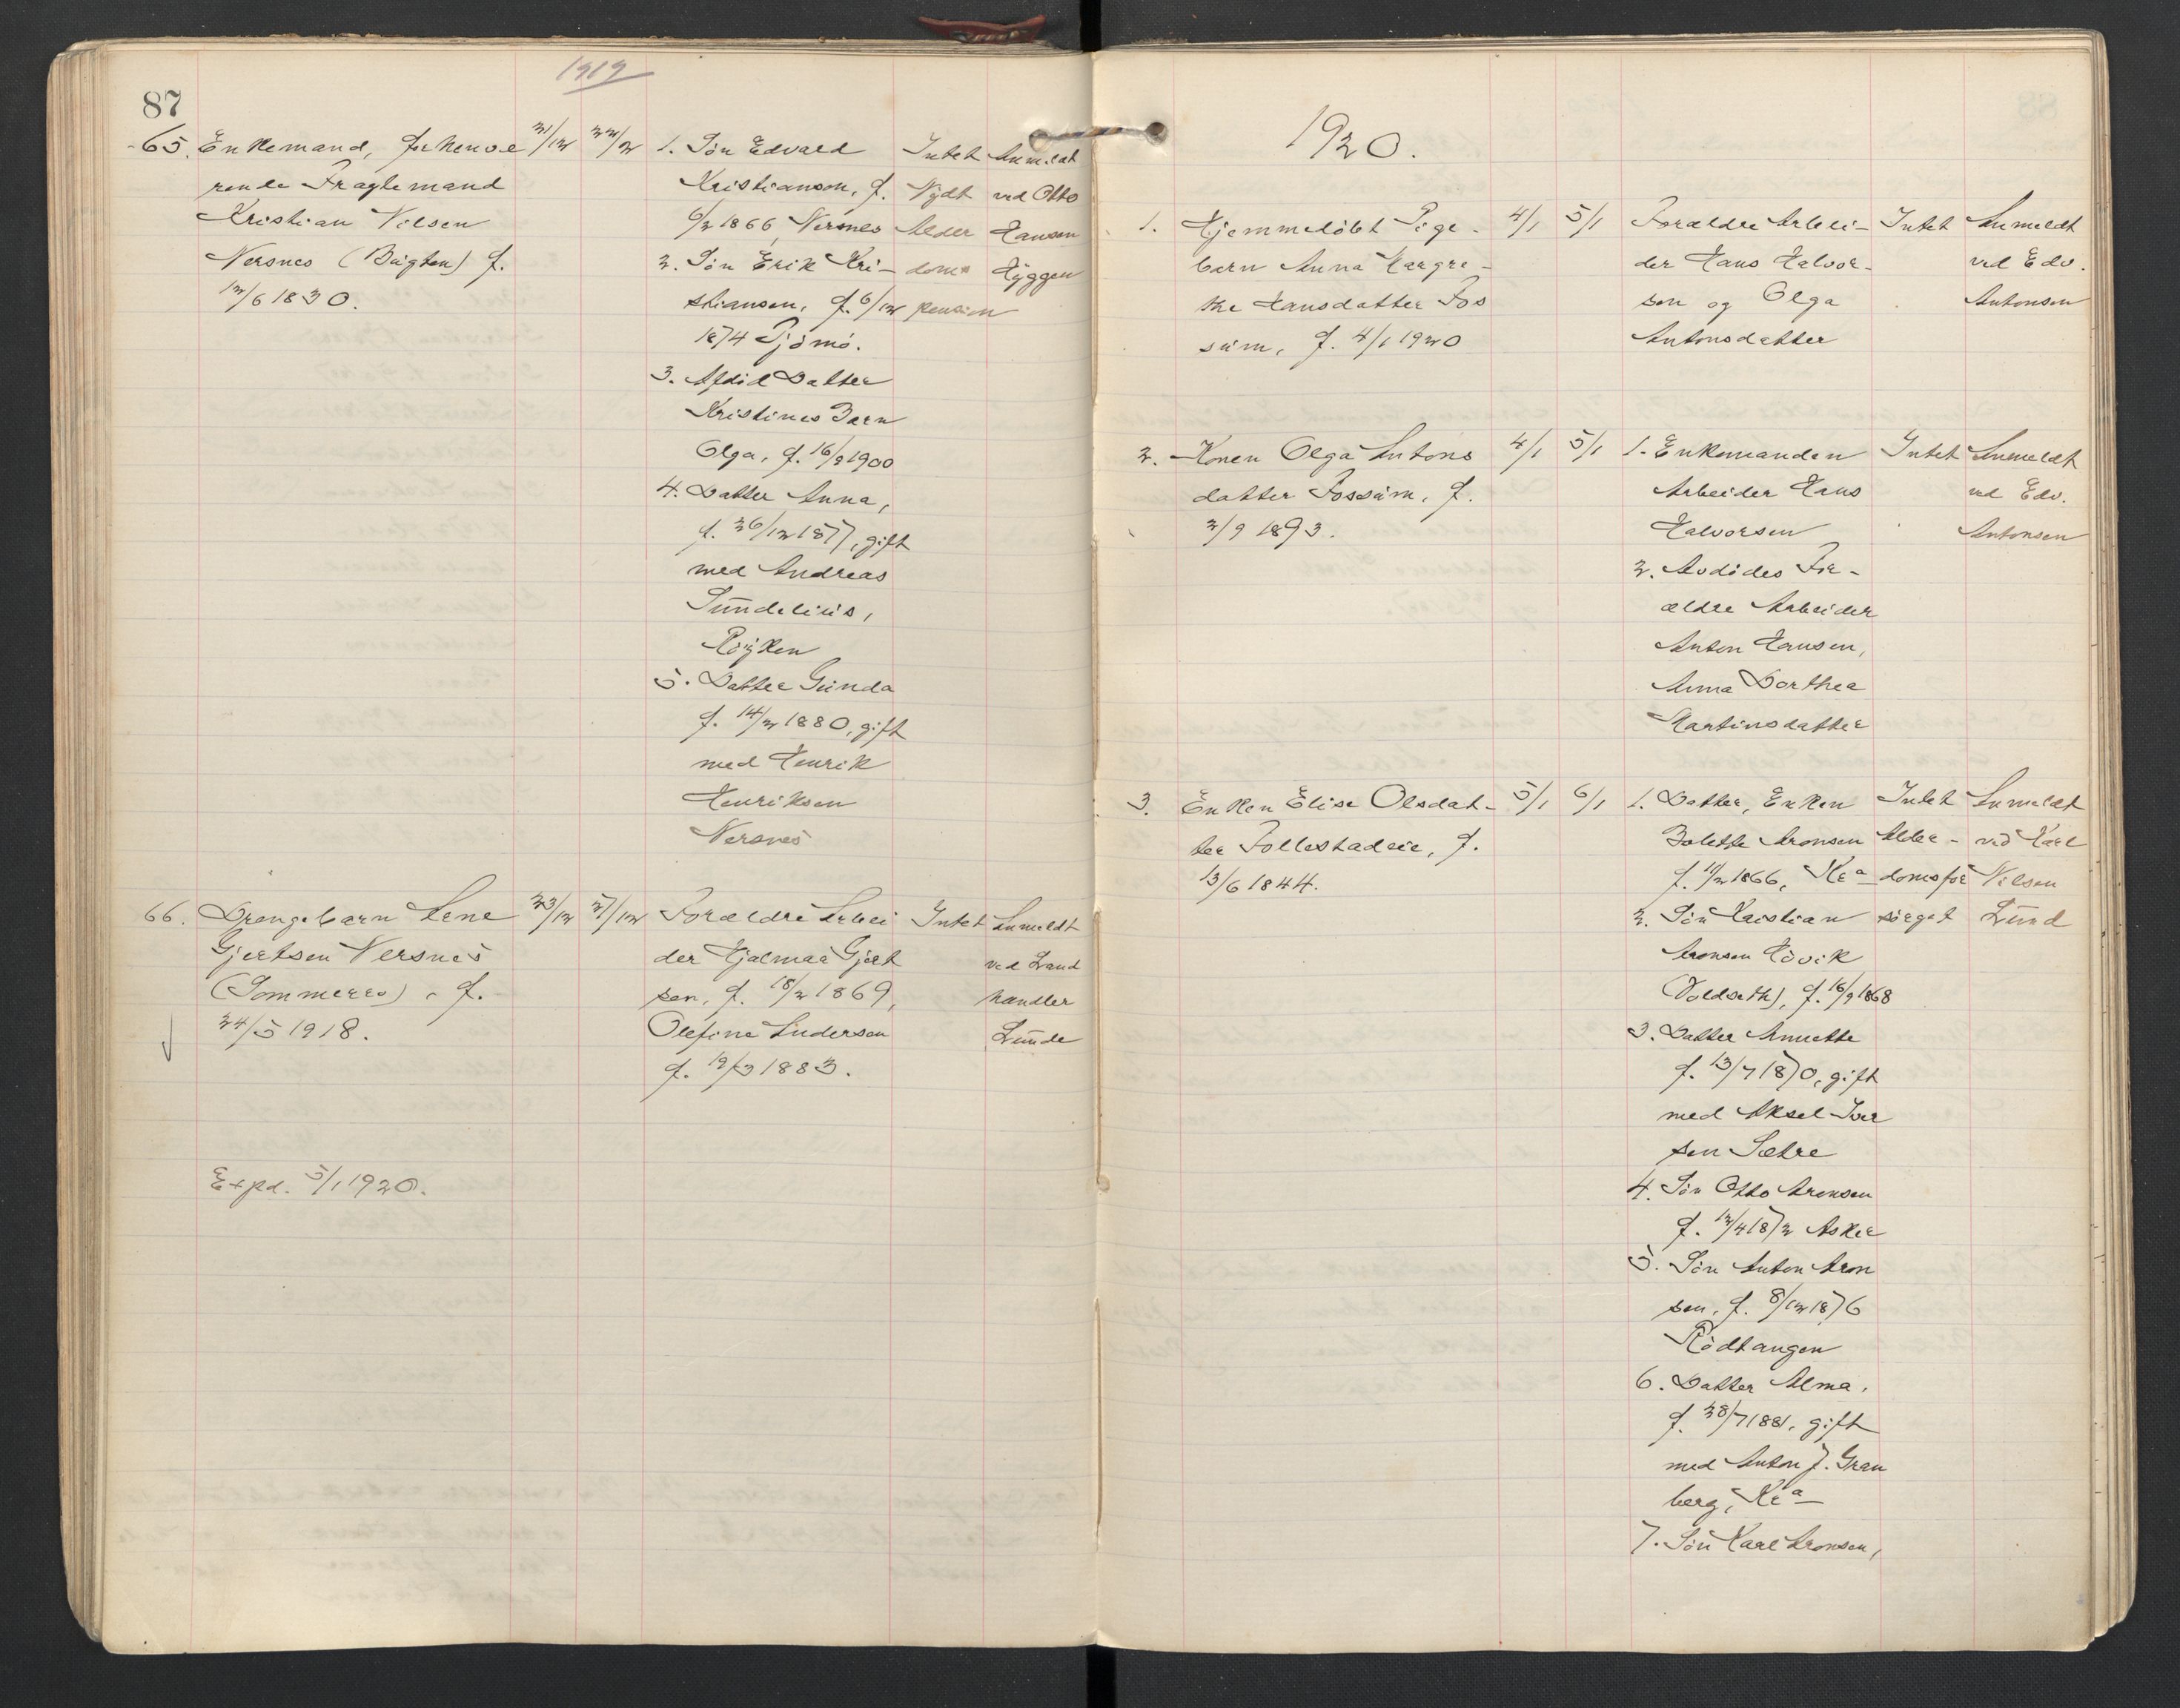 87
1919
65. Enkemand, forhenvæ 21/12 22/12
rende Fragtemand
Kristian Nilsen
Nersnes (Bugten) f.
12/6 1830.
1. Søn Edvard
Kristiansen, f.
6/2 1866, Nersnes
2. Søn Erik Kri-
stiansen, f. 6/12
1874 Tjömö.
3. Afdöd Datter
Kristines Barn
Olga, f. 16/8 1900
4. Datter Anna,
f. 26/12 1877, gift
med Andreas
Sundelius,
Röyken
5. Datter Gunda
f. 14/2 1880, gift
med Henrik
Henriksen
Nersnes
Intet
Nydt
Alder
doms
pension
Anmeldt
ved Otto
Hansen
Hyggen
66. Drengebarn Lene 23/12 27/12
Gjertsen Nersnes
(Sommerro), f.
24/5 1918.
Forældre Arbei
der Hjalmar Gjert
sen, f. 18/2 1869,
Olefine Andersen
f. 19/3 1883.
Intet
Anmeldt
ved Land
handler
Lunde
Expd. 5/1 1920.
1920.
1. Hjemmedöbt Pige- 4/1 5/1
barn Anna Margre-
the Hansdatter Fos
sum, f. 4/1 1920
Forældre Arbei-
der Hans Halvor-
sen og Olga
Antonsdatter
Intet
Anmeldt
ved Edv.
Antonsen
2. Konen Olga Antons 4/1 5/1
datter Fossum, f.
2/9 1893.
1. Enkemanden
Arbeider Hans
Halvorsen
2. Avdödes For-
ældre Arbeider
Anton Hansen,
Anna Dorthea
Martinsdatter
Intet
Anmeldt
ved Edv.
Antonsen
3. Enken Elise Olsdat- 5/1 6/1
ter Follestadeie, f.
13/6 1844.
1. Datter, Enken
Bolette Aronsen
f. 11/2 1866, Kra
2. Sön Kristian
Aronsen Hövik
(Voldseth), f. 16/9 1868
3. Datter Annette
f. 13/7 1870, gift
med Aksel Iver
sen Sætre
4. Sön Otto Aronsen
f. 12/4 1872 Asker
5. Sön Anton Aron
sen, f. 8/12 1876
Rödtangen
6. Datter Alma,
f. 28/7 1881, gift
med Anton J. Gran
berg, Kra
7. Sön Karl Aronsen,
Intet
Alder-
domsfor
sörget
Anmeldt
ved Karl
Nilsen
Lund